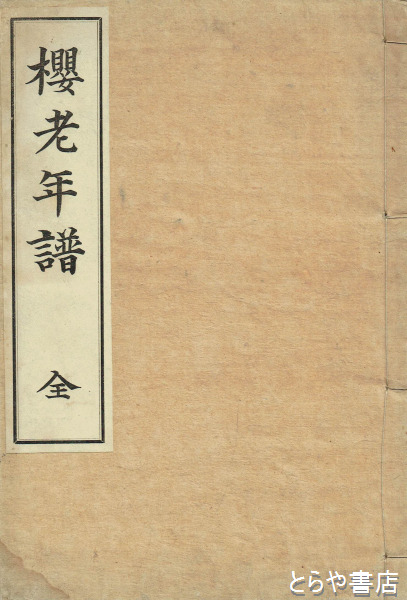 櫻老年譜 全
とらや書店